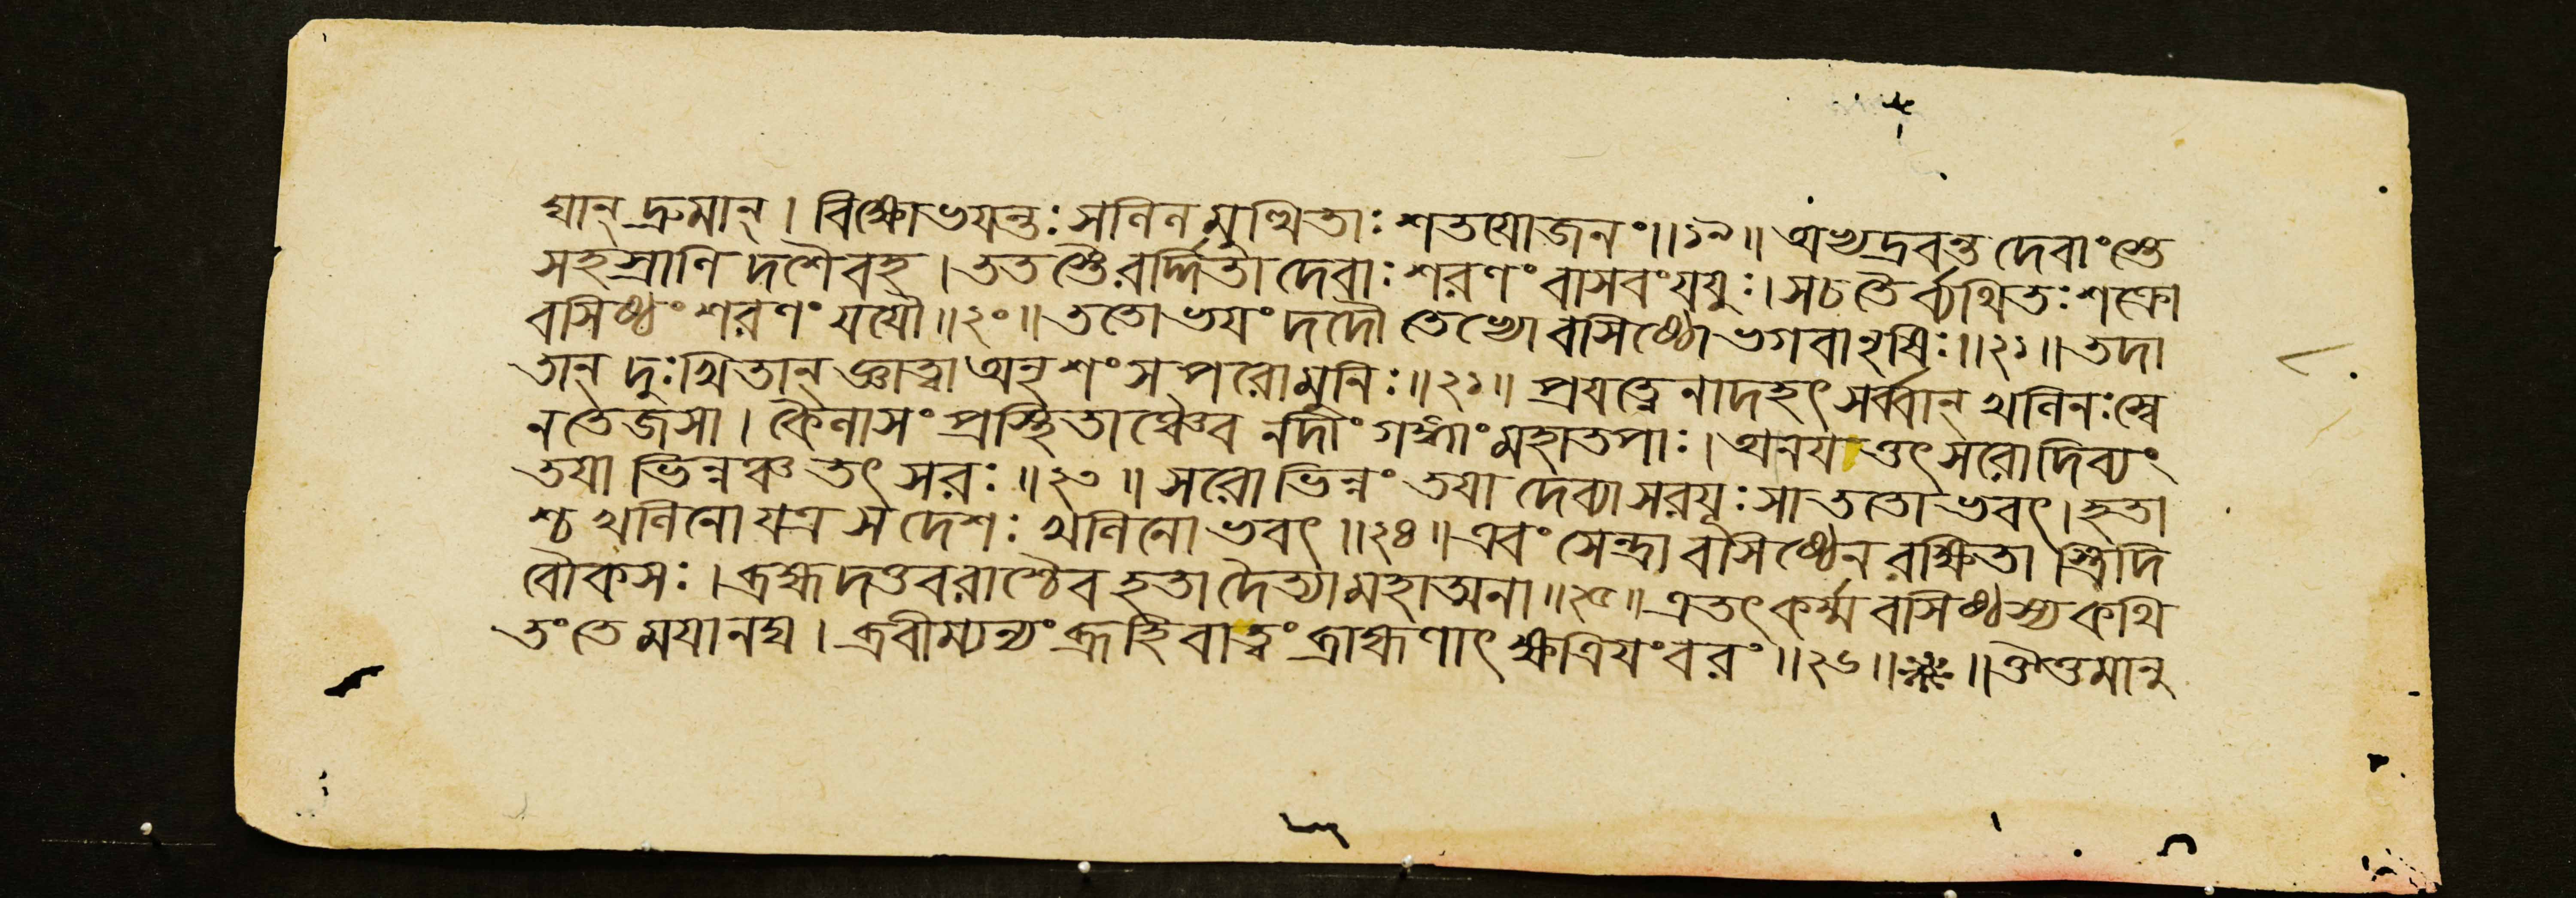 দ্মান্ দ্রুমান্। বিক্ষোভযন্তঃ সলিলমুত্থিতাঃ শতযোজনং॥১৯॥ অভ্যদ্রবন্ত দেবাংস্তে
সহস্রাণি দশৈবহ। ততস্তৈরর্দ্দিতা দেবাঃ শরণং বাসবংযযুঃ। সচ তৈর্ব্যথিতঃ শক্রো
বসিষ্ঠং শরণং যযৌ॥২০॥ ততোভযং দদৌ তেভ্যো বসিষ্ঠো ভগবানৃষিঃ॥২১॥ তদা
তান্ দুঃখিতান্ জ্ঞাত্বা অনৃশংস পরোমুনিঃ॥২২॥ প্রযত্নেনাদহৎ সর্ব্বান্ খলিনঃস্বে
ন তেজসা। কৈলাসং প্রস্থিতাঞ্চৈব নদীং গঙ্গাং মহাতপাঃ। অনযত্তৎ সরোদিব্যং
তযা ভিন্নঞ্চ তৎ সরঃ॥২৩॥ সরোভিন্নং তযা দেব্যা সরযূঃ সা ততোভবৎ। হতা
শ্চ খলিনো যত্র স দেশঃ খলিনোভবৎ॥২৪॥ এবং সেন্দ্রা বসিষ্ঠেন রক্ষিতাস্ত্রিদি
বৌকসঃ। ব্রহ্মদত্তবরাশ্চৈব হতা দৈত্যামহাত্মনা॥২৫॥ এতৎ কর্ম্ম বসিষ্ঠস্য কথি
তং তে মযানঘ। ব্রবীম্যন্যং ব্রূহি বাত্বং ব্রাহ্মণাৎ ক্ষত্রিযংবরং॥২৬॥ ॥ঔত্তমানু